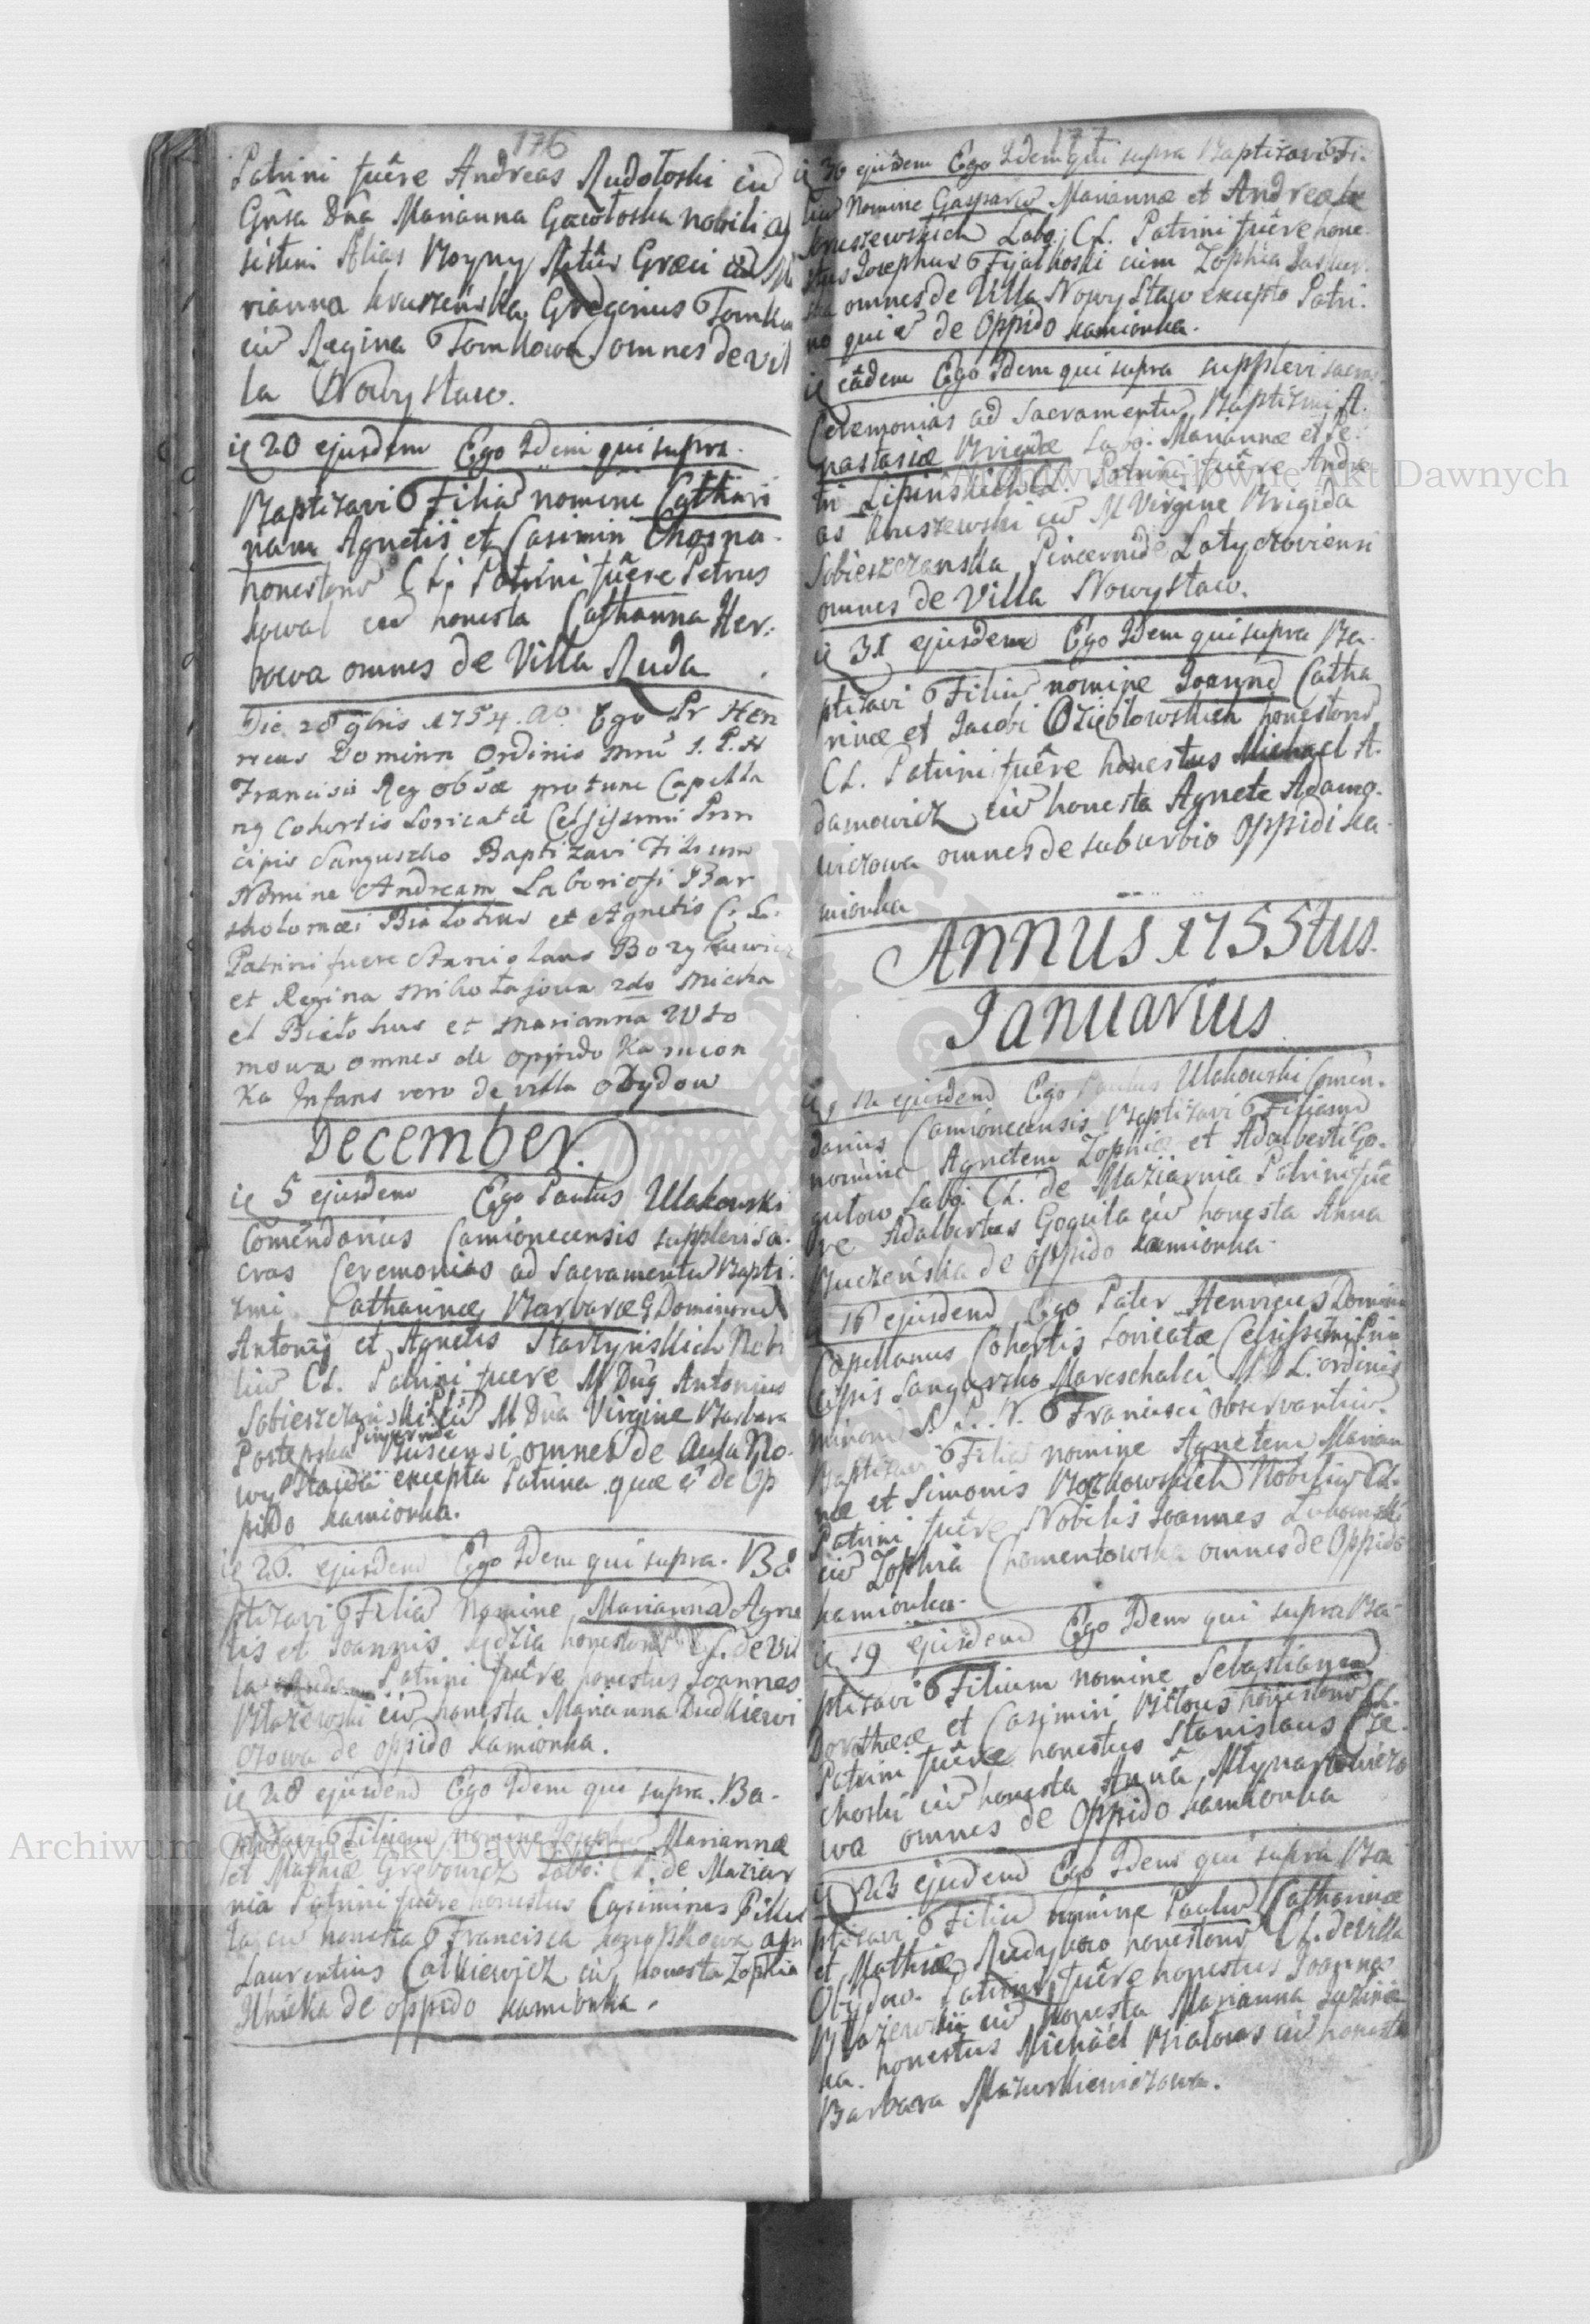 176
Patrini fuêre Andreas Rudoloski cu
Gnsa Dna Marianna Gawłoska nobili as
sistini Alias Boyny Ritûs Græci cu Ma
rianna Kruszeńska, Gregorius Tomku
cu Regina Tomkowa omnes de vil
la Nowystaw.
ie 20 ejusdem Ego Idem qui supra.
Baptizavi Filia nomine Cathari
nam Agnetis et Casimiri Chosna
honestoru CL; Patrini fuêre Petrus
Kowal cu honesta Catharina Her.
bowa omnes de Villa Ruda
Die 28 9bris 1754. Ao Ego Pr Hen
ricus Dominn Ordinis Mnu S. P. N
Francisci Reg obsæ pro tunc Capella
ng Cohortis Loricatæ Celsissimi Prin
cipis Sanguszko Baptizavi Filium
Nomine Andream Laboriosi Bar
tholomæi Białohus et Agnetis C: L.
Patrini fuere Stanislaus Bozykiewicz
et Regina Mikołajowa 2do Micha
el Białohus et Marianna Wło
mowa omnes de oppido Kamion
ka Infans vero de villa Obydow
December.
ie 5 ejusdem Ego Paulus Ulakowski
Comendarius Camionecensis supplevi sa.
cras Ceremonias ad Sacramentu Bapti
zmi Catharinæ, Barbaræ G Dominoru
Antonij et Agnetis Startyńskich Nobi
liu CL. Patrini fuere M Dng Antonius
Sobieszczański cu M Dna Virgine Barbara
Postepska Pincernide Buscensi omnes de Aula No.
wy Stawie excepta Patrina quæ e de Op
pido Kamionka.
ie 26. ejusdem Ego Idem qui supra. Ba
ptizavi Filia Nomine Marianna Agne
tis et Joannis Sędzia honestoru CL. de Vil
la Patrini fuêre honestus Joannes
Błażewski cu honesta Marianna Dudkiewi
czowa de oppido Kamionka.
ie 28 ejusdem Ego Idem qui supra. Ba-
ptizavi Filium nomine Josephu Mariannæ
et Mathiæ Grębowicz Labo: CL. de Maziar
nia Patrini fuêre honestus Casimirus Pikul
la cu honesta Francisca Konopkowa
Laurentius Całkiewicz cu honesta Zophia
Ulnicka de oppido Kamionka.
177
ie 30 ejusdem Ego Idem qui supra Baptizavi Fi.
liu Nomine Gasparu Mariannæ et Andreæ
Kruszewskich Labo: CL. Patrini fuêre hone.
stus Josephus Fijałkoski cum Zophia Jasker.
ska omnes de Villa Nowy Staw excepto Patri.
no qui e de Oppido Kamionka.
ie eâdem Ego Idem qui supra supplevi sacras
Ceremonias ad Sacramentu Baptizmi A.
nastasiæ Brigidæ Labo: Mariannæ et Pe.
tri Lipińskich CL. Patrini fuêre Andre
as Kruszewski cu M Virgine Brigida
Sobieszczanska Pincernide Latyczoviensi
omnes de Villa Nowystaw.
ie 31 ejusdem Ego Idem qui supra Ba.
ptizavi Filiu nomine Joanne Catha
rinæ et Jacobi Oziębłowskich honestoru
CL. Patrini fuêre honestus Michael A.
damowicz cu honesta Agnete Adamo.
wiczowa omnes de suburbio Oppidi Ka.
mionka
Annus 1755tus.
Januarius
ie 12 ejusdem Ego Paulus Ulakowski Comen.
darius Camionecensis Baptizavi Filiam
nomine Agnetem Zophiæ et Adalberti Go.
gułow Labo: CL. de Maziarnia Patrini fuê
re Adalbertus Goguła cu honesta Anna
Buczeńska de oppido Kamionka.
16 ejusdem Ego Pater Henricus Dominn
Capellanus Cohortis Loricatæ Celsissimi Prin
cipis Sanguszko Mareschalci M D L. ordinis
Minoru S. P. N. Francisci Observantiu.
Baptizavi Filia nomine Agnetem Marian
næ et Simonis Borkowskich Nobiliu CL.
Patrini fuêre Nobilis Joannes Lukowski
cu Zophia Chomentowska omnes de Oppido
Kamionka.
ie 19 ejusdem Ego Idem qui supra Ba-
ptizavi Filium nomine Sebastianu
Dorotheæ et Casimiri Bilous honestoru CL.
Patrini fuêre honestus Stanislaus Cze.
choski cu honesta Anna Młynarkowiczo
wa omnes de Oppido Kamionka
ie 23 ejusdem Ego Idem qui supra Ba
ptizavi Filiu nomine Paulu Catharinæ
et Mathiæ Rudykow honestoru CL. de Villa
Obydow. Patrini fuêre honestus Joannes
Błażewski cu honesta Marianna Łaziń
ka. honestus Michaël Białows cu honesta
Barbara Mazurkiewiczowa.
Archiwum Główne Akt Dawnych
Archiwum Główne Akt Dawnych